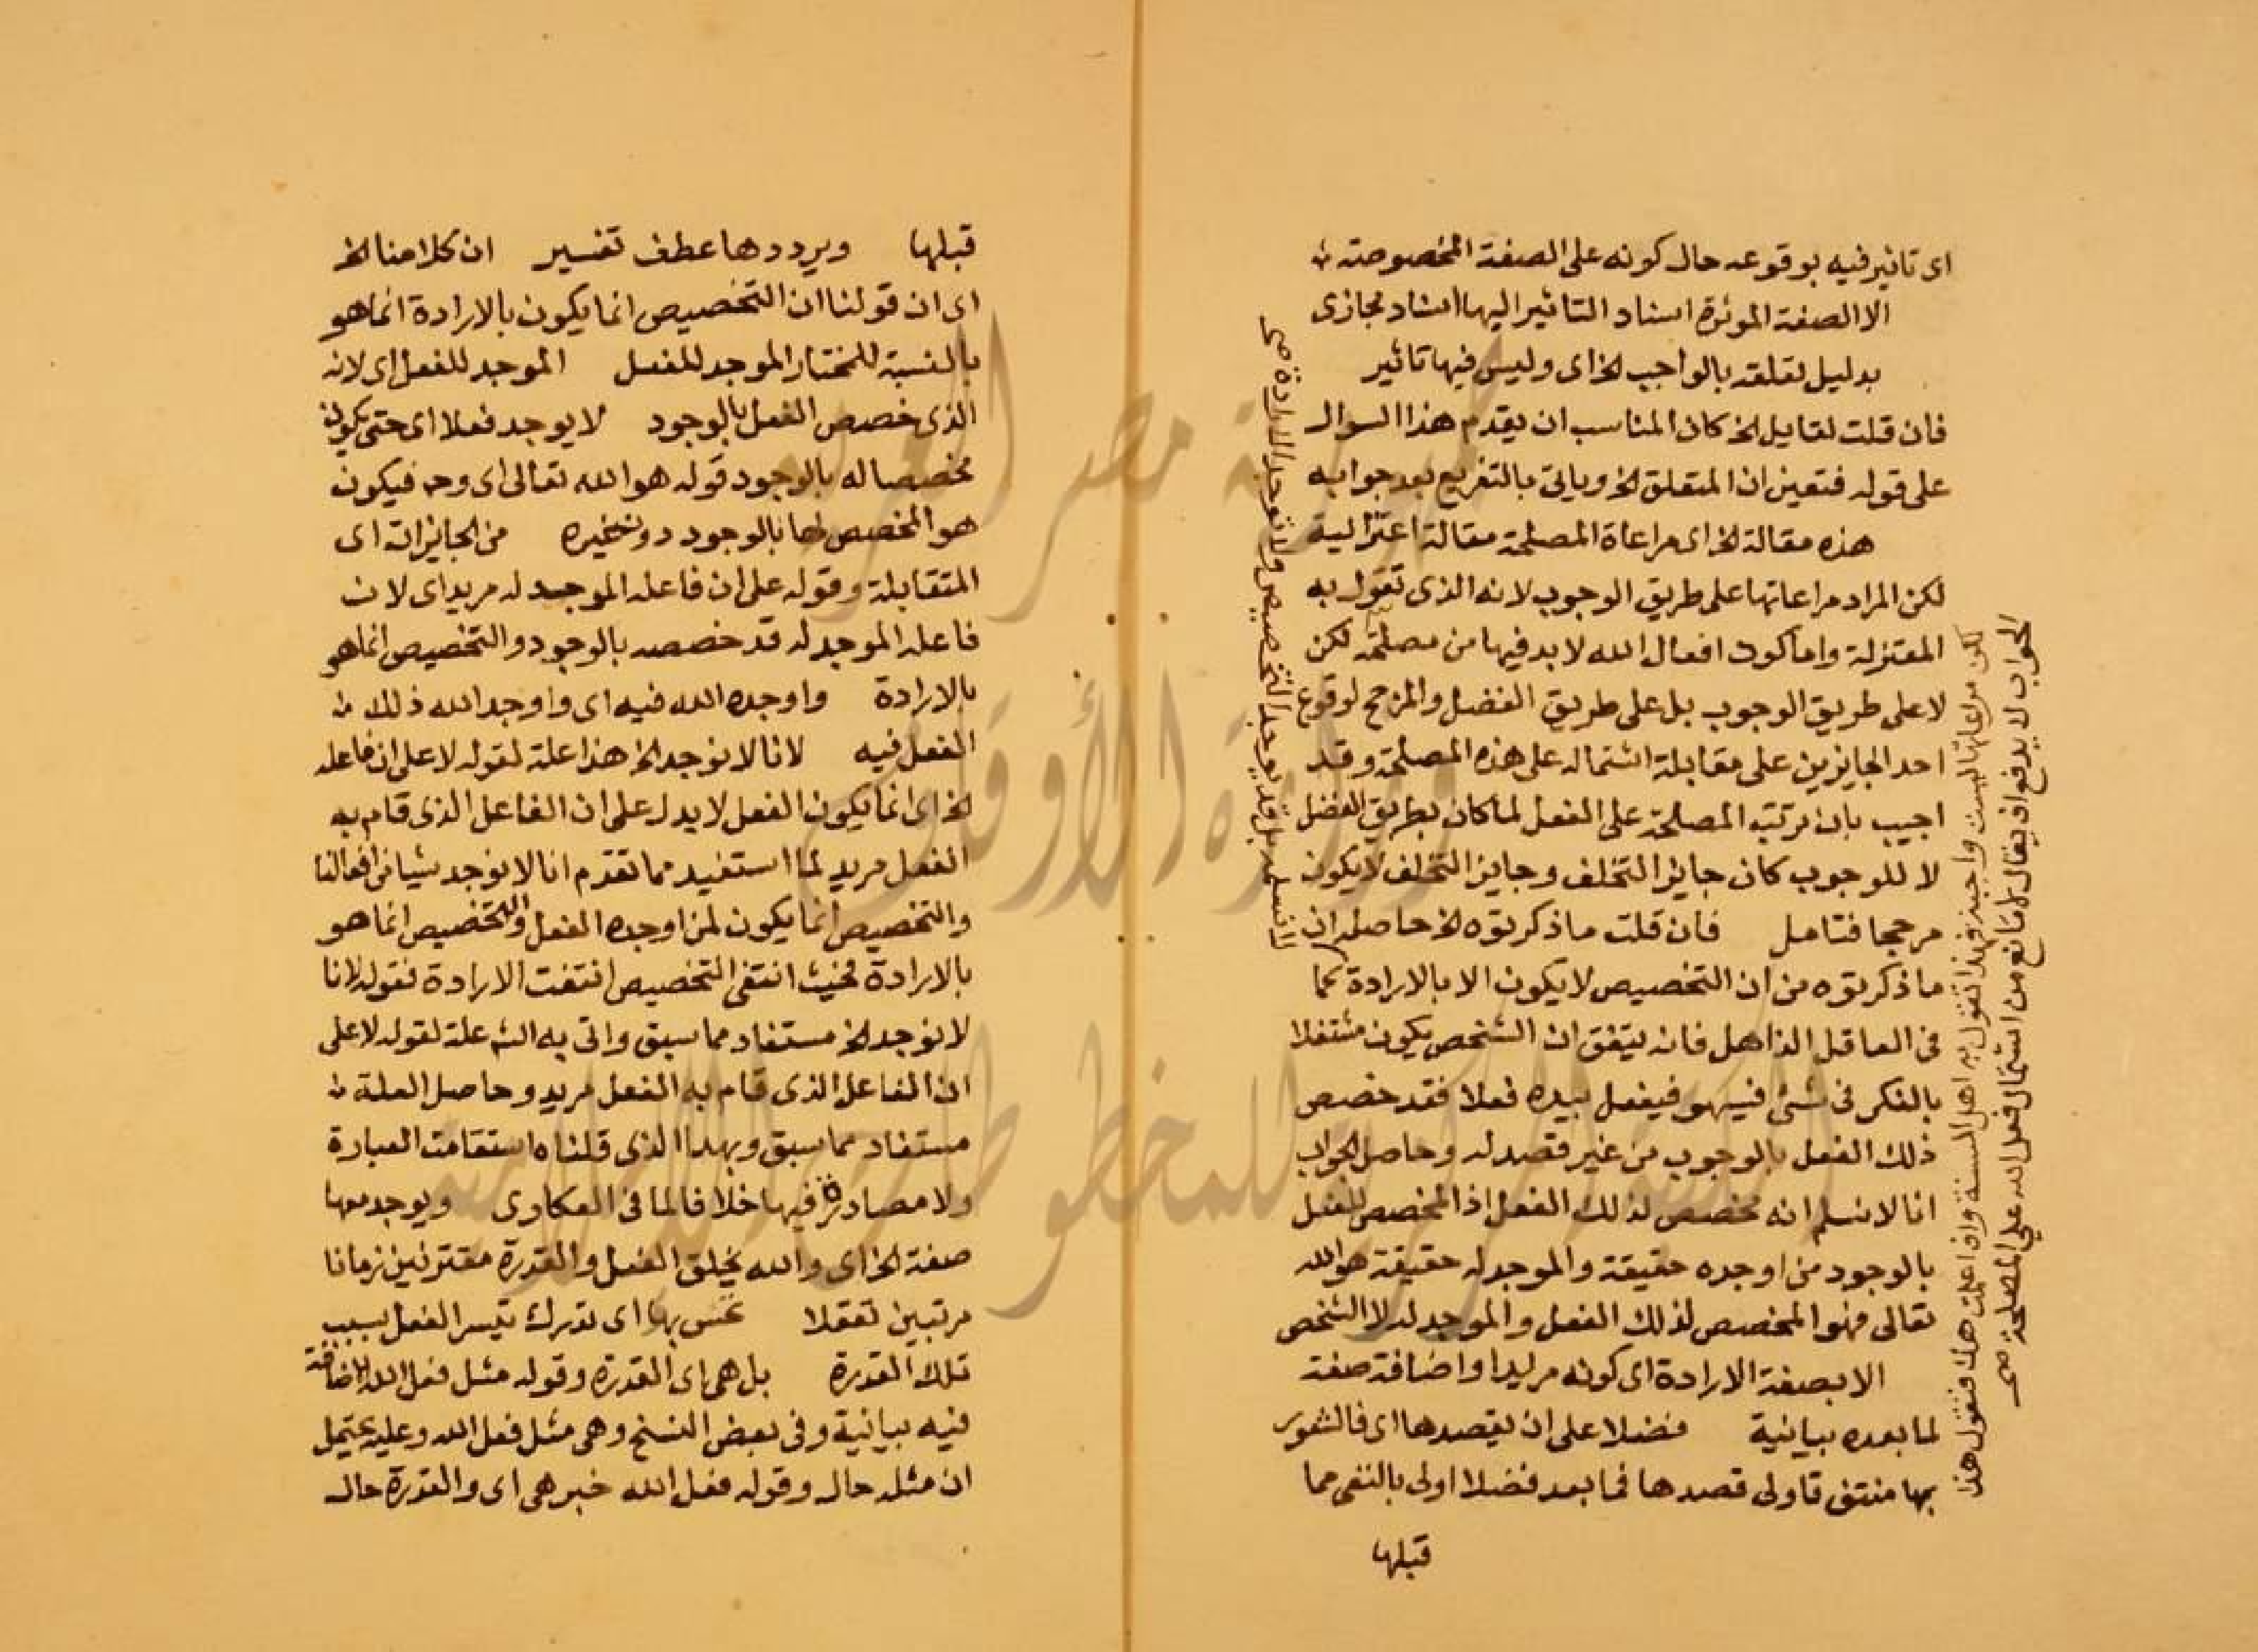 اى تاثير فيه بوقوعه حال كونه على الصفة المخصوصة
الا الصفة الموثرة اسناد التاثير اليها اسناد مجازى
بدليل تعلقه بالواجب الخ اى وليس فيها تاثير
فان قلت لقايل الخ كان المناسب ان يقدم هذا السوال
على قوله فتعين ان المتعلق الخ وياتى بالتفريع بعد جوابه
هذه مقالة الخ اى مراعاة المصلحة مقالة اعتزالية
لكن المراد مراعاتها على طريق الوجوب لانه الذى تقول به
المعتزلة واما كون افعال الله لا بد فيها من مصلحة لكن
لا على طريق الوجوب بل على طريق الفضل والمرجح لوقوع
احد الجايزين على مقابلة اشتماله على هذه المصلحة وقد
اجيب بان ترتب المصلحة على الفعل لما كان بطريق الفضل
لا للوجوب كان جايز التخلف وجايز التخلف لا يكون
مرجحا فتامل فان قلت ما ذكرتوه الخ حاصله ان
ما ذكرتوه من ان التخصيص لا يكون الا بالارادة كما
فى العاقل الذاهل فانه يتفق ان الشخص يكون مشتغلا
بالفكر فى شئ فيسهو فيفعل بيده فعلا فقد خصص
ذلك الفعل بالوجوب من غير قصد له وحاصل الجواب
انا لا نسلم انه مخصص لذلك الفعل اذ المخصص للفعل
بالوجود من اوجده حقيقة والموجد له حقيقة هو الله
تعالى فهو المخصص لذلك الفعل والموجد له لا الشخص
الا بصفة الارادة اى كونه مريدا واضافة صفة
لما بعده بيانية فضلا على ان يقصدها اى فالشعور
بها منتف فاولى قصدها فما بعد فضلا اولى بالنفى مما
قبلها
لكن مراعاتها ليست واجبة فهذا تقول به اهل السنة واذا علمت هذا فنقول هذا
الجواب لا يدفع اذ يقال لا مانع من اشتمال فعل الله على المصلحة صح
لا نسلمه بل قد يوجد التخصيص ولا توجد الارادة صح
قبلها ويرددها عطف تفسير ان كلامنا الخ
اى ان قولنا ان التخصيص انما يكون بالارادة انما هو
بالنسبة للمختار الموجد للفعل الموجد للفعل اى لانه
الذى خصص الفعل بالوجود لا يوجد فعلا اى حتى يكون
مخصصا له بالوجود قوله هو الله تعالى اى وح فيكون
هو المخصص لها بالوجود دون غيره من الجايزات اى
المتقابلة وقوله على ان فاعله الموجد له مريد اى لان
فاعله الموجد له قد خصصه بالوجود والتخصيص انما هو
بالارادة واوجده الله فيه اى واوجد الله ذلك
الفعل فيه لانا لا نوجد الخ هذا علة لقوله لا على ان فاعله
الخ اى انما يكون الفعل لا يدل على ان الفاعل الذى قام به
الفعل مريد لما استفيد مما تقدم انا لا نوجد شيا فى افعالنا
والتخصيص انما يكون لمن اوجده الفعل والتخصيص انما هو
بالارادة فحيث انتفى التخصيص انتفت الارادة فقوله لانا
لا نوجد الخ مستفاد مما سبق واتى به الش علة لقوله لا على
ان الفاعل الذى قام به الفعل مريد وحاصل العلة
مستفاد مما سبق وبهذا الذى قلناه استقامت العبارة
ولا مصادرة فيها خلافا لما فى العكارى ويوجد معها
صفة الخ اى والله يخلق الفعل والقدرة مقترنين زمانا
مرتبين تعقلا نحس بها اى ندرك تيسر الفعل بسبب
تلك القدرة بل هى اى القدرة وقوله مثل فعل الله الاضافة
فيه بيانية وفى بعض النسخ وهى مثل فعل الله وعليه يحتمل
ان مثله حال وقوله فعل الله خبر هى اى والقدرة حال